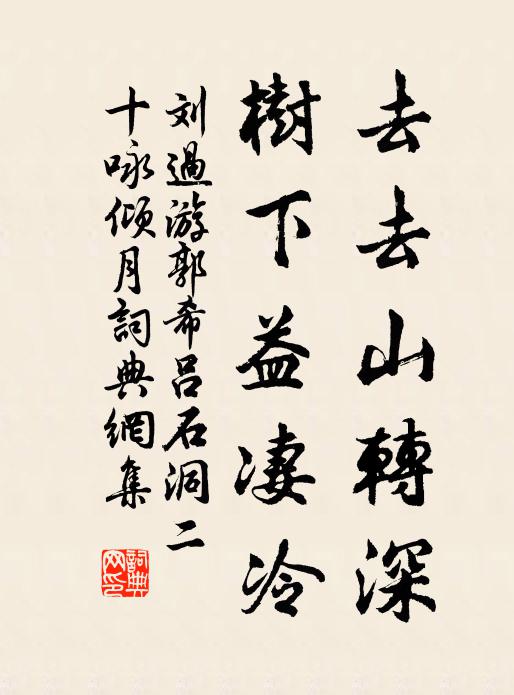 去去山轉深
樹下益淒冷
刘過游郭希呂石洞二
十咏傾月詞典網集
詞典網印